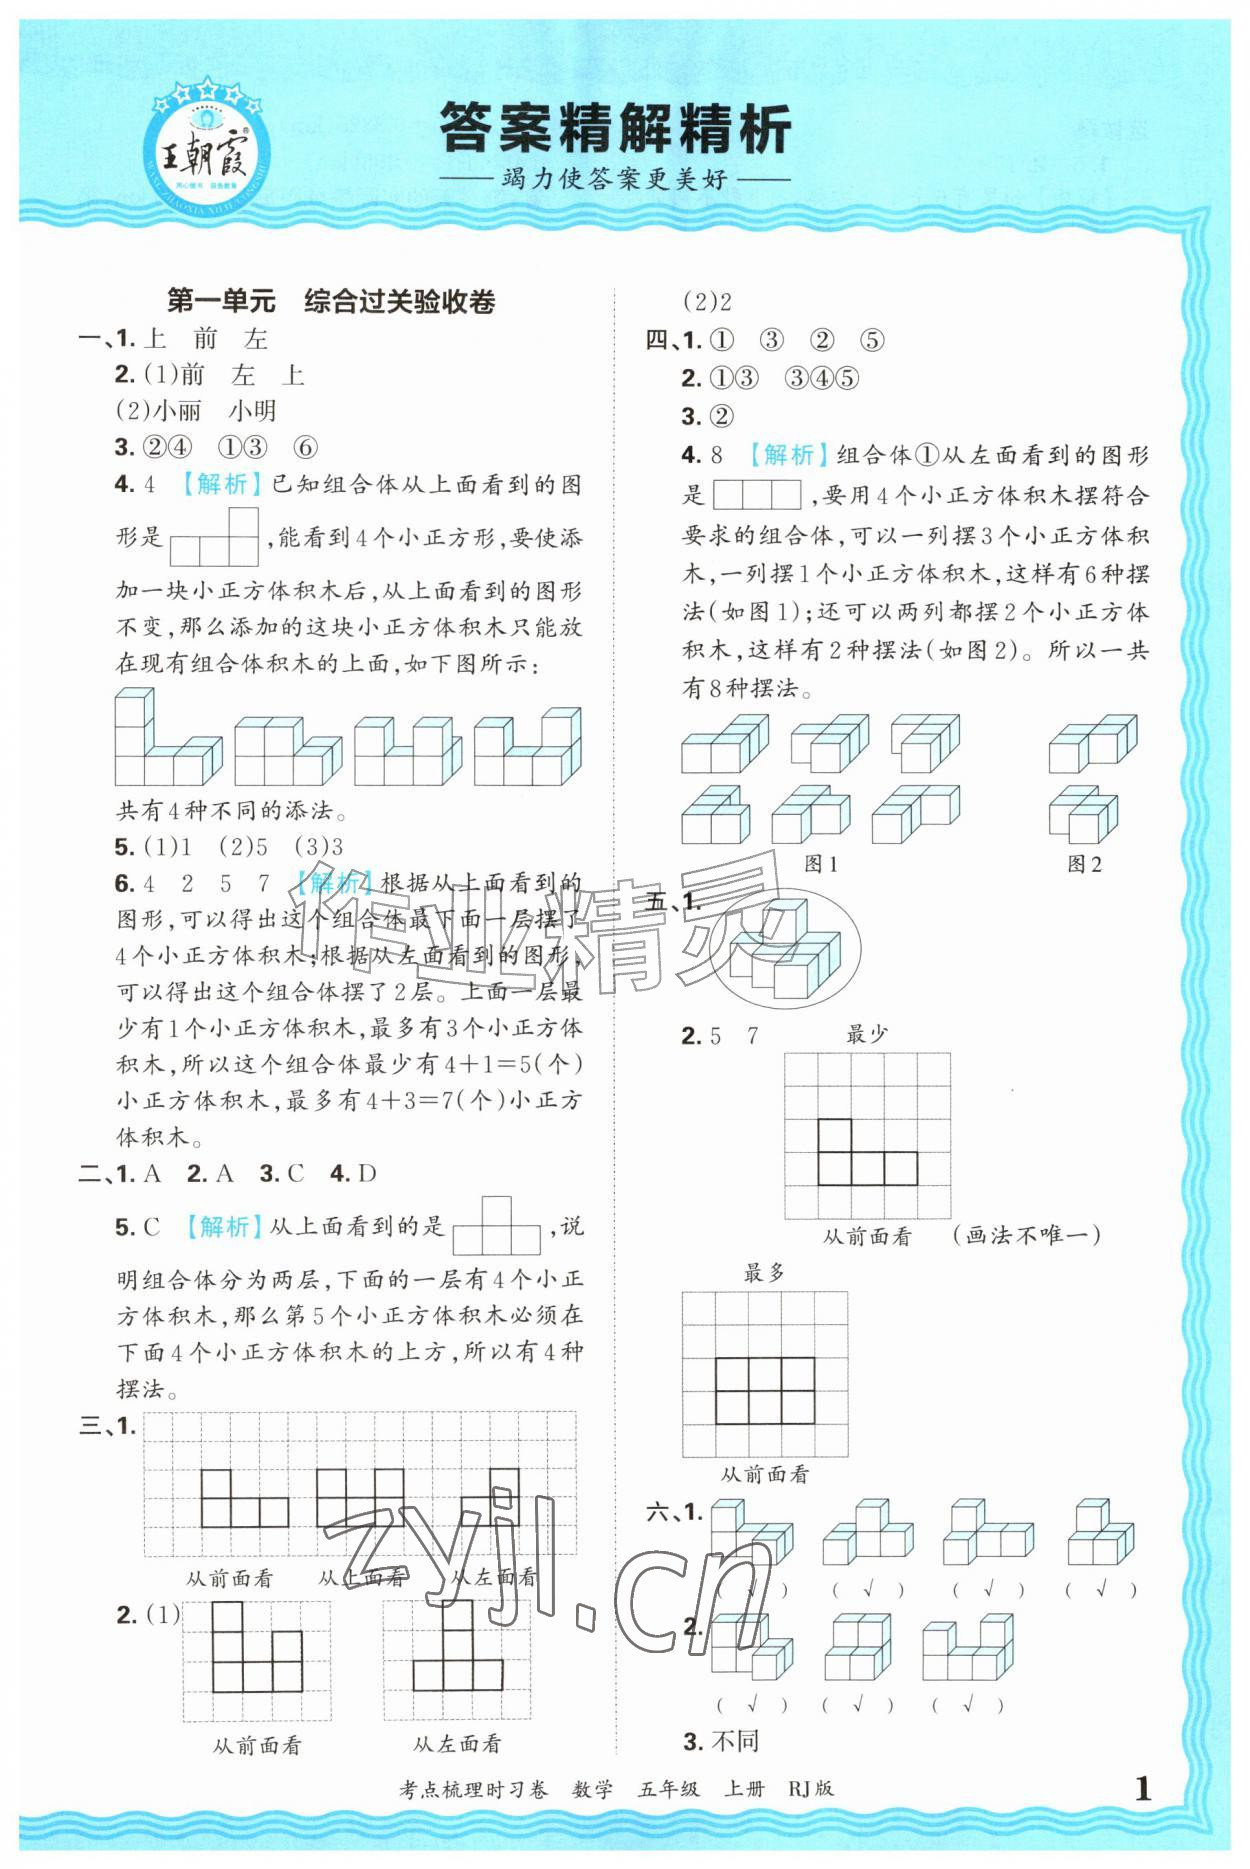 王朝霞®
答案精解精析
竭力使答案更美好
第一单元 综合过关验收卷
一、1. 上 前 左
2. (1)前 左 上
(2)小丽 小明
3. ②④ ①③ ⑥
4. 4 【解析】已知组合体从上面看到的图
形是,能看到4个小正方形,要使添
加一块小正方体积木后,从上面看到的图形
不变,那么添加的这块小正方体积木只能放
在现有组合体积木的上面,如下图所示:
共有4种不同的添法。
5. (1)1 (2)5 (3)3
6. 4 2 5 7 【解析】根据从上面看到的
图形,可以得出这个组合体最下面一层摆了
4个小正方体积木;根据从左面看到的图形,
可以得出这个组合体摆了2层。上面一层最
少有1个小正方体积木,最多有3个小正方体
积木,所以这个组合体最少有4+1=5(个)
小正方体积木,最多有4+3=7(个)小正方
体积木。
二、1. A 2. A 3. C 4. D
5. C 【解析】从上面看到的是,说
明组合体分为两层,下面的一层有4个小正
方体积木,那么第5个小正方体积木必须在
下面4个小正方体积木的上方,所以有4种
摆法。
三、1.
从前面看 从上面看 从左面看
2. (1)
从前面看 从左面看
(2)2
四、1. ① ③ ② ⑤
2. ①③ ③④⑤
3. ②
4. 8 【解析】组合体①从左面看到的图形
是,要用4个小正方体积木摆符合
要求的组合体,可以一列摆3个小正方体积
木,一列摆1个小正方体积木,这样有6种摆
法(如图1);还可以两列都摆2个小正方体
积木,这样有2种摆法(如图2)。所以一共
有8种摆法。
图1 图2
五、1.
2. 5 7 最少
从前面看 (画法不唯一)
最多
从前面看
六、1.
( √ ) ( √ ) ( √ ) ( √ )
2.
( √ ) ( √ ) ( √ )
3. 不同
作业精灵
zyjl.cn
考点梳理时习卷 数学 五年级 上册 RJ版
1